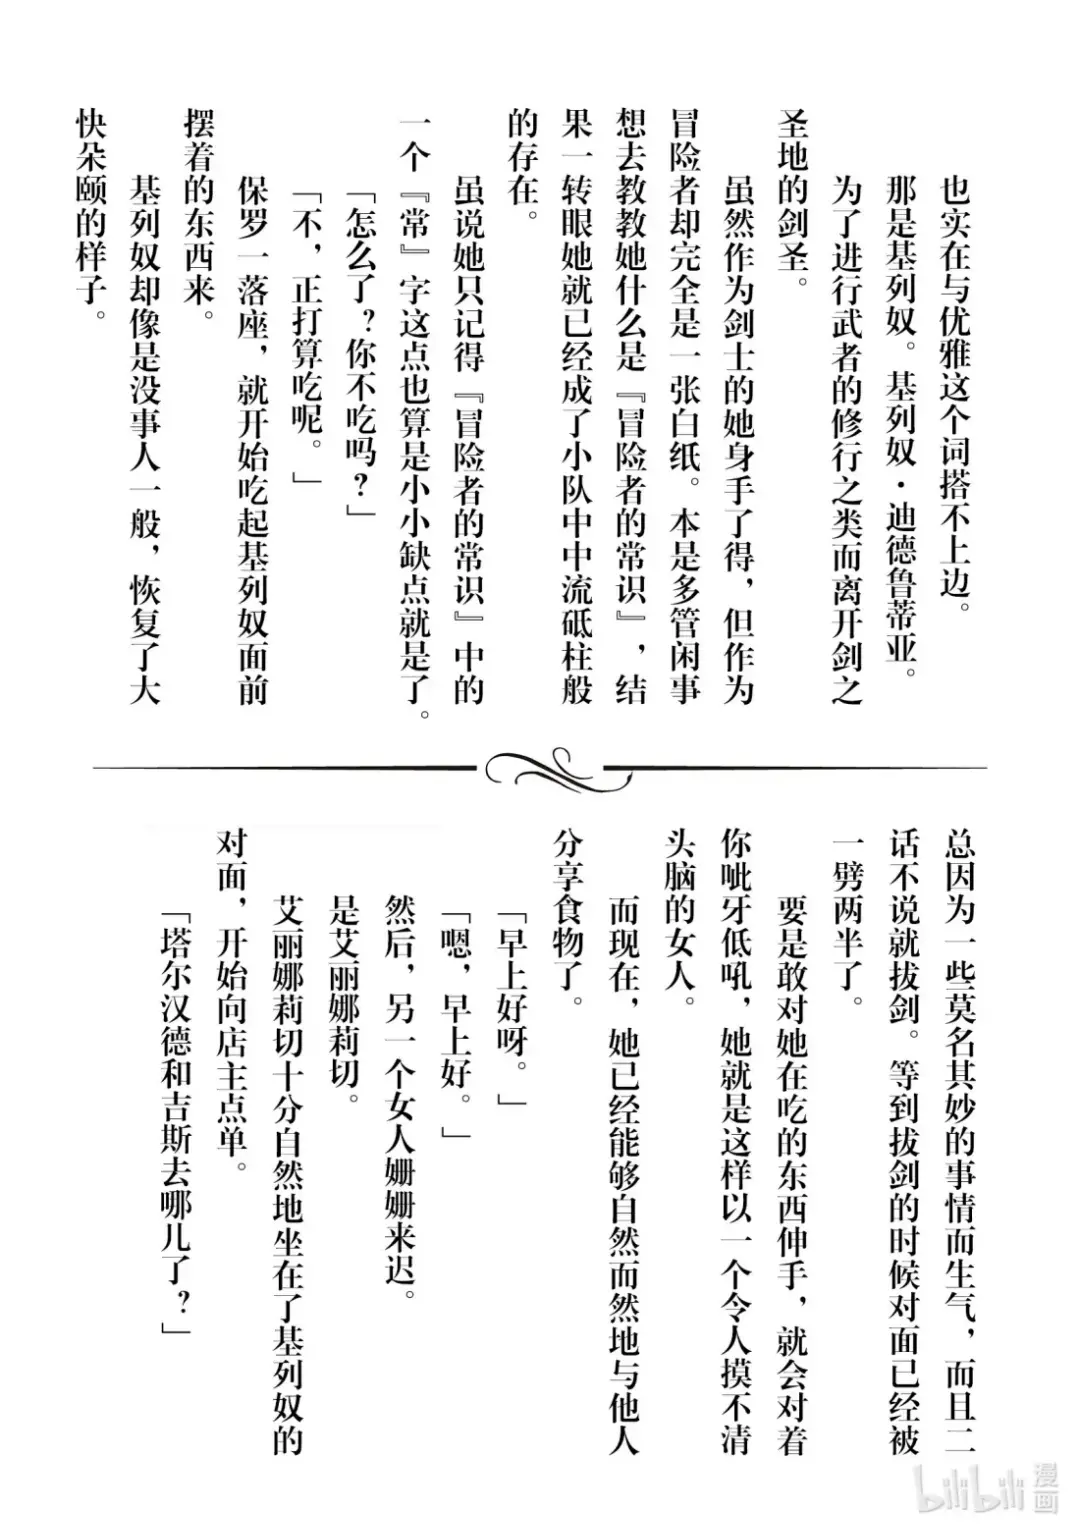 也实在与优雅这个词搭不上边。
那是基列奴。基列奴·迪德鲁蒂亚。
为了进行武者的修行之类而离开剑之
圣地的剑圣。
虽然作为剑士的她身手了得，但作为
冒险者却完全是一张白纸。本是多管闲事
想去教教她什么是『冒险者的常识』，结
果一转眼她就已经成了小队中中流砥柱般
的存在。
虽说她只记得『冒险者的常识』中的
一个『常』字这点也算是小小缺点就是了。
「怎么了？你不吃吗？」
「不，正打算吃呢。」
保罗一落座，就开始吃起基列奴面前
摆着的东西来。
基列奴却像是没事人一般，恢复了大
快朵颐的样子。
总因为一些莫名其妙的事情而生气，而且二
话不说就拔剑。等到拔剑的时候对面已经被
一劈两半了。
要是敢对她在吃的东西伸手，就会对着
你呲牙低吼，她就是这样以一个令人摸不清
头脑的女人。
而现在，她已经能够自然而然地与他人
分享食物了。
「早上好呀。」
「嗯，早上好。」
然后，另一个女人姗姗来迟。
是艾丽娜莉切。
艾丽娜莉切十分自然地坐在了基列奴的
对面，开始向店主点单。
「塔尔汉德和吉斯去哪儿了？」
bilibili 漫画